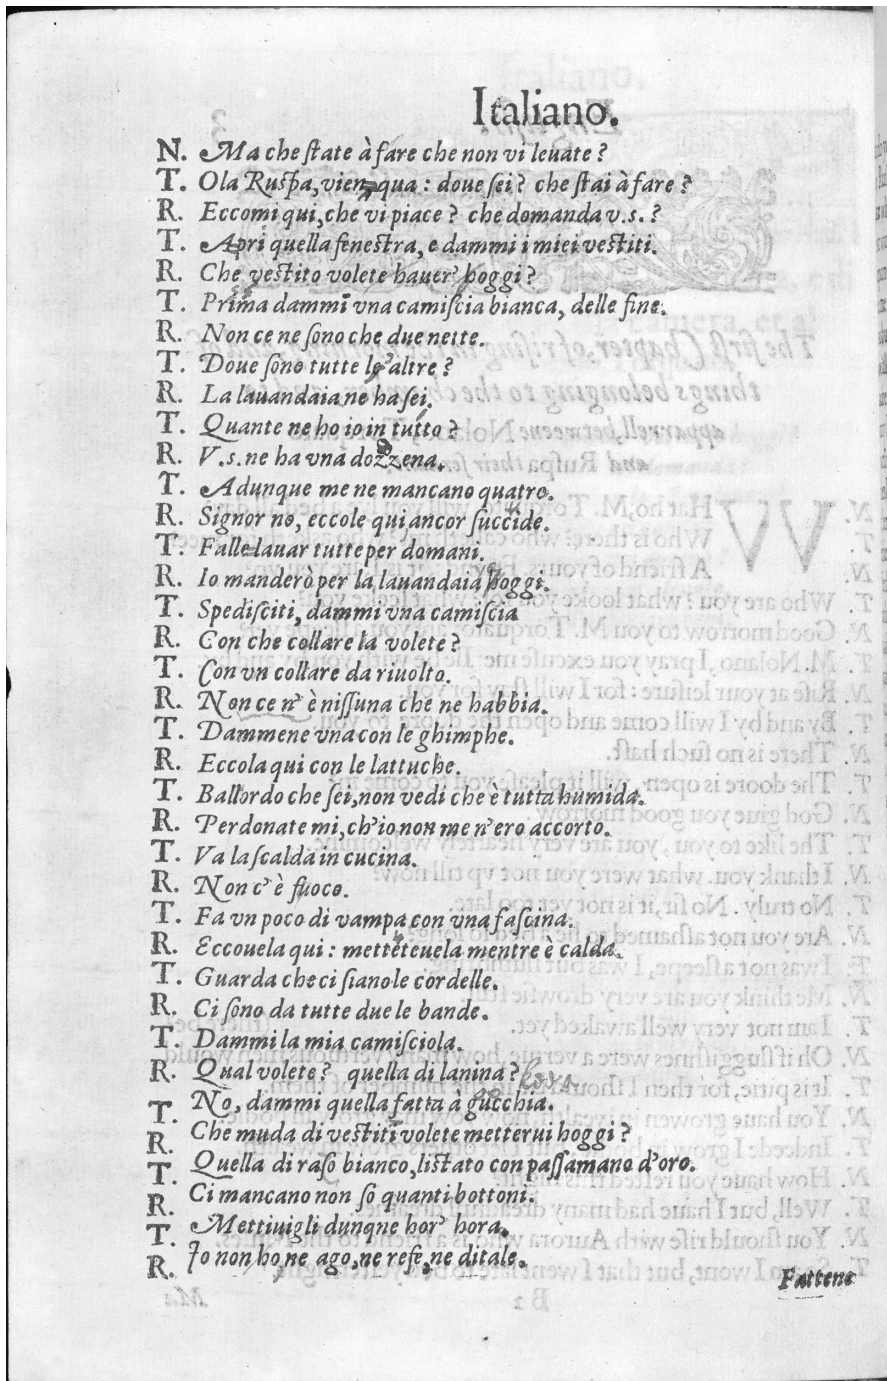 Italiano.
N. Ma che ſtate à fare che non vi leuate?
T. Ola Ruſpa, vien qua: doue ſei? che ſtai à fare?
R. Eccomi qui, che vi piace? che domanda v.s.?
T. Apri quella feneſtra, e dammi i miei veſtiti.
R. Che veſtito volete hauer' hoggi?
T. Prima dammi vna camiſcia bianca, delle fine.
R. Non ce ne ſono che due nette.
T. Doue ſono tutte le altre?
R. La lauandaia ne ha ſei.
T. Quante ne ho io in tutto?
R. V.s. ne ha vna dozzena.
T. Adunque me ne mancano quatro.
R. Signor no, eccole qui ancor ſuccide.
T. Falle lauar tutte per domani.
R. Io manderò per la lauandaia hoggi.
T. Spediſciti, dammi vna camiſcia
R. Con che collare la volete?
T. Con vn collare da riuolto.
R. Non ce n' è niſſuna che ne habbia.
T. Dammene vna con le ghimphe.
R. Eccola qui con le lattuche.
T. Ballordo che ſei, non vedi che è tutta humida.
R. Perdonate mi, ch'io non me n'ero accorto.
T. Va la ſcalda in cucina.
R. Non c' è fuoco.
T. Fa vn poco di vampa con vna faſcina.
R. Eccouela qui: metteteuela mentre è calda.
T. Guarda che ci ſiano le cordelle.
R. Ci ſono da tutte due le bande.
T. Dammi la mia camiſciola.
R. Qual volete? quella di lanina?
T. No, dammi quella fatta à gucchia.
R. Che muda di veſtiti volete metterui hoggi?
T. Quella di raſo bianco, liſtato con paſſamano d'oro.
R. Ci mancano non ſo quanti bottoni.
T. Mettiuigli dunqne hor' hora.
R. Io non ho ne ago, ne refe, ne ditale.
Fattene